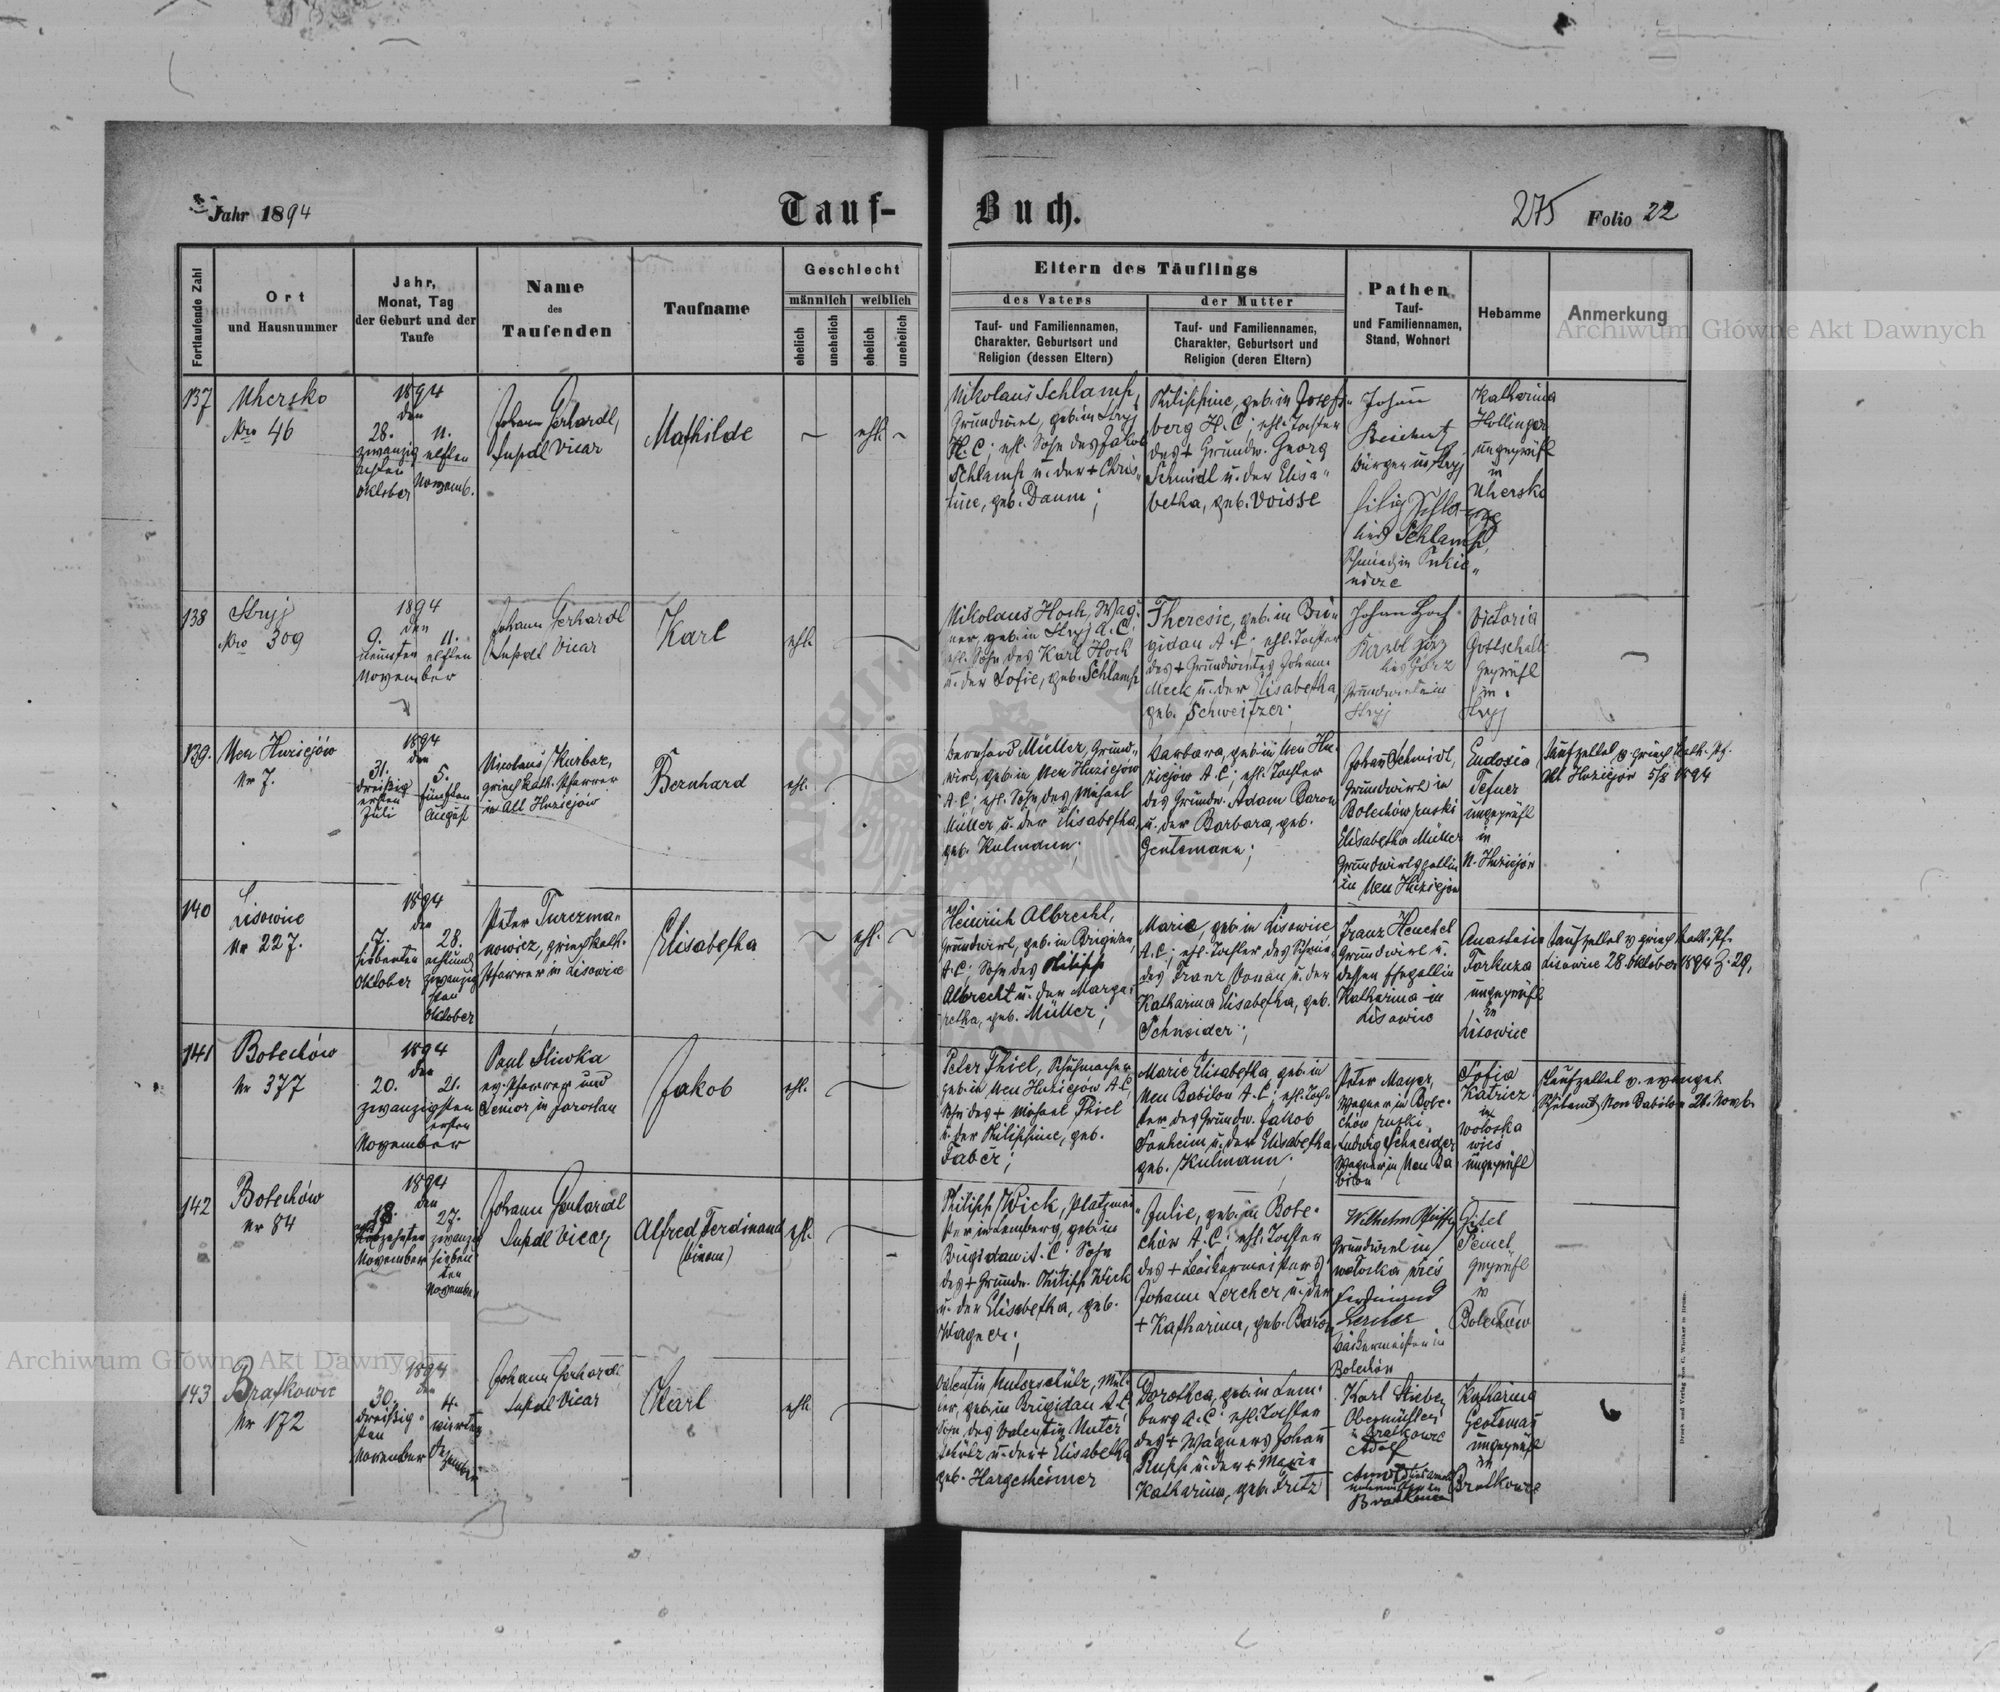 Jahr 1894
Tauf-
Buch.
275 Folio 22
Fortlaufende Zahl
Ort
und Hausnummer
Jahr,
Monat, Tag
der Geburt und der
Taufe
Name
des
Taufenden
Taufname
Geschlecht
männlich
weiblich
ehelich
unehelich
ehelich
unehelich
Eltern des Täuflings
des Vaters
Tauf- und Familiennamen,
Charakter, Geburtsort und
Religion (dessen Eltern)
der Mutter
Tauf- und Familiennamen,
Charakter, Geburtsort und
Religion (deren Eltern)
Pathen
Tauf-
und Familiennamen,
Stand, Wohnort
Hebamme
Anmerkung
Archiwum Główne Akt Dawnych
137
Uhersko
Nro 46
1894
den
28. 11.
zwanzig elften
achten
Oktober Novemb.
Johann Gerhardl,
Supdl Vicar
Mathilde
ehl.
Nikolaus Schlamp,
Grundwirt, geb. in Stryj
H. C; ehl. Sohn des Jakob
Schlamp u. der + Chris-
tine, geb. Daum;
Philippine, geb. in Josefs-
berg H. C; ehl. Tochter
des + Grundw. Georg
Schmidl u. der Elisa-
betha, geb. Voisse
Johann
Bürger in Stryj
Schlamp,
Schmied in
Katharina
Hollinger
ungeprüft
in
Uhersko
138
Stryj
Nro 309
1894
den
9. 11.
neunten elften
November
Johann Gerhardl
Supdl Vicar
Karl
ehl.
Nikolaus Hoch, Wag-
ner, geb. in Stryj A. C;
ehl. Sohn des Karl Hoch
u. der Sofie, geb. Schlamp
Theresie, geb. in Bri-
gidau A. C; ehl. Tochter
des + Grundwirtes Johann
Meck u. der Elisabetha,
geb. Schweitzer;
Johann Hoch
Grundwirte in
Stryj
Victoria
Gottschalk
geprüft
in
Stryj
139.
Neu Huziejów
Nr 7.
1894
den
31. 5.
dreißig fünften
ersten
Juli August
Nicolaus Kurbas,
griech kath. Pfarrer
in Alt Huziejów
Bernhard
ehl.
Bernhard Müller, Grund-
wirt, geb. in Neu Huziejów
A. C; ehl. Sohn des Michael
Müller u. der Elisabetha,
geb. Kulmann;
Barbara, geb. in Neu Hu-
ziejów A. C; ehl. Tochter
des Grundw. Adam Baron
u. der Barbara, geb.
Gentemann;
Johann Schmidt,
Grundwirt in
Bolechów ruski
Elisabetha Müller
Grundwirtsgattin
in Neu Huziejów
Eudosia
Tefner
ungeprüft
in
N. Huziejów
Taufzettel v. griech kath. Pf.
Alt Huziejów 5/8 1894
140
Lisowice
Nr 227.
1894
den
7. 28.
siebenten achtund
Oktober zwanzig
sten
Oktober
Peter Turczma-
nowicz, griech kath.
Pfarrer in Lisowice
Elisabetha
ehl.
Heinrich Albrecht,
Grundwirt, geb. in Brigidau
A. C; Sohn des Philipp
Albrecht u. der Marga-
retha, geb. Müller;
Marie, geb. in Lisowice
A. C; ehl. Tochter des
des Franz Donau u. der
Katharina Elisabetha, geb.
Schneider;
Franz Henchel
Grundwirt u.
dessen Ehegattin
Katharina in
Lisowice
Anastasia
Farkuza
ungeprüft
in
Lisowice
Taufzettel v griech kath. Pf.
Lisowice 28. Oktober 1894 Z. 29,
141
Bolechów
Nr 377
1894
den
20. 21.
zwanzigsten
ersten
November
Paul Sliwka
ev. Pfarrer und
Senior in Jaroslau
Jakob
ehl.
Peter Thiel, Schuhmacher
geb. in Neu Huziejów A. C;
Sohn des + Michael Thiel
u. der Philippine, geb.
Faber;
Marie Elisabetha geb. in
Neu Babilon A. C; ehl. Toch-
ter des Grundw. Jakob
Fonheim u. der Elisabetha
geb. Kulmann.
Peter Mayer,
Wagner in Bole-
chów ruski.
Ludwig Schneider
Wagner in Neu Ba
bilon
Sofia
Katricz
in
Woloska
wies
ungeprüft
Taufzettel v. evangel.
Pfarramt Neu Babilon 21. Novb.
142
Bolechów
Nr 84
1894
den
18. 27.
achtzehnten zwanzig
November sieben
ten
November
Johann Gerhardl
Supdl Vicar
Alfred Ferdinand
(binom)
ehl.
Philipp Wick, Platzmei-
ster in Lemberg, geb. in
Brigidau A. C: Sohn
des + Grundw. Philipp Wick
u. der Elisabetha, geb.
Wagner;
Julie, geb. in Bole-
chów A. C: ehl. Tochter
des + Bäckermeisters
Johann Lercher u. der
+ Katharina, geb. Baron
Wilhelm Pfeiffer
Grundwirt in
Woloska wies
Ferdinand
Lercher
Bäckermeister in
Bolechów
Gitel
geprüft
Bolechów
143
Bratkowce
Nr 172
1894
den
30. 4.
dreißig- vierten
sten
November Dezember
Johann Gerhardl
Supdl Vicar
Karl
ehl.
Valentin Unterschütz, Mül-
ler, geb. in Brigidau A. C,
Sohn des Valentin Unter
schütz u. der + Elisabetha
geb. Hargesheimer
Dorothea, geb. in Lem-
berg A. C: ehl. Tochter
des + Wagners Johann
Rupp u. der + Marie
Katharina, geb. Fritz
Karl Stieber
Obermüller
in Bratkowce
Adolf
Bratkowce
Katharina
Genteman
ungeprüft
in
Bratkowce
Archiwum Główne Akt Dawnych